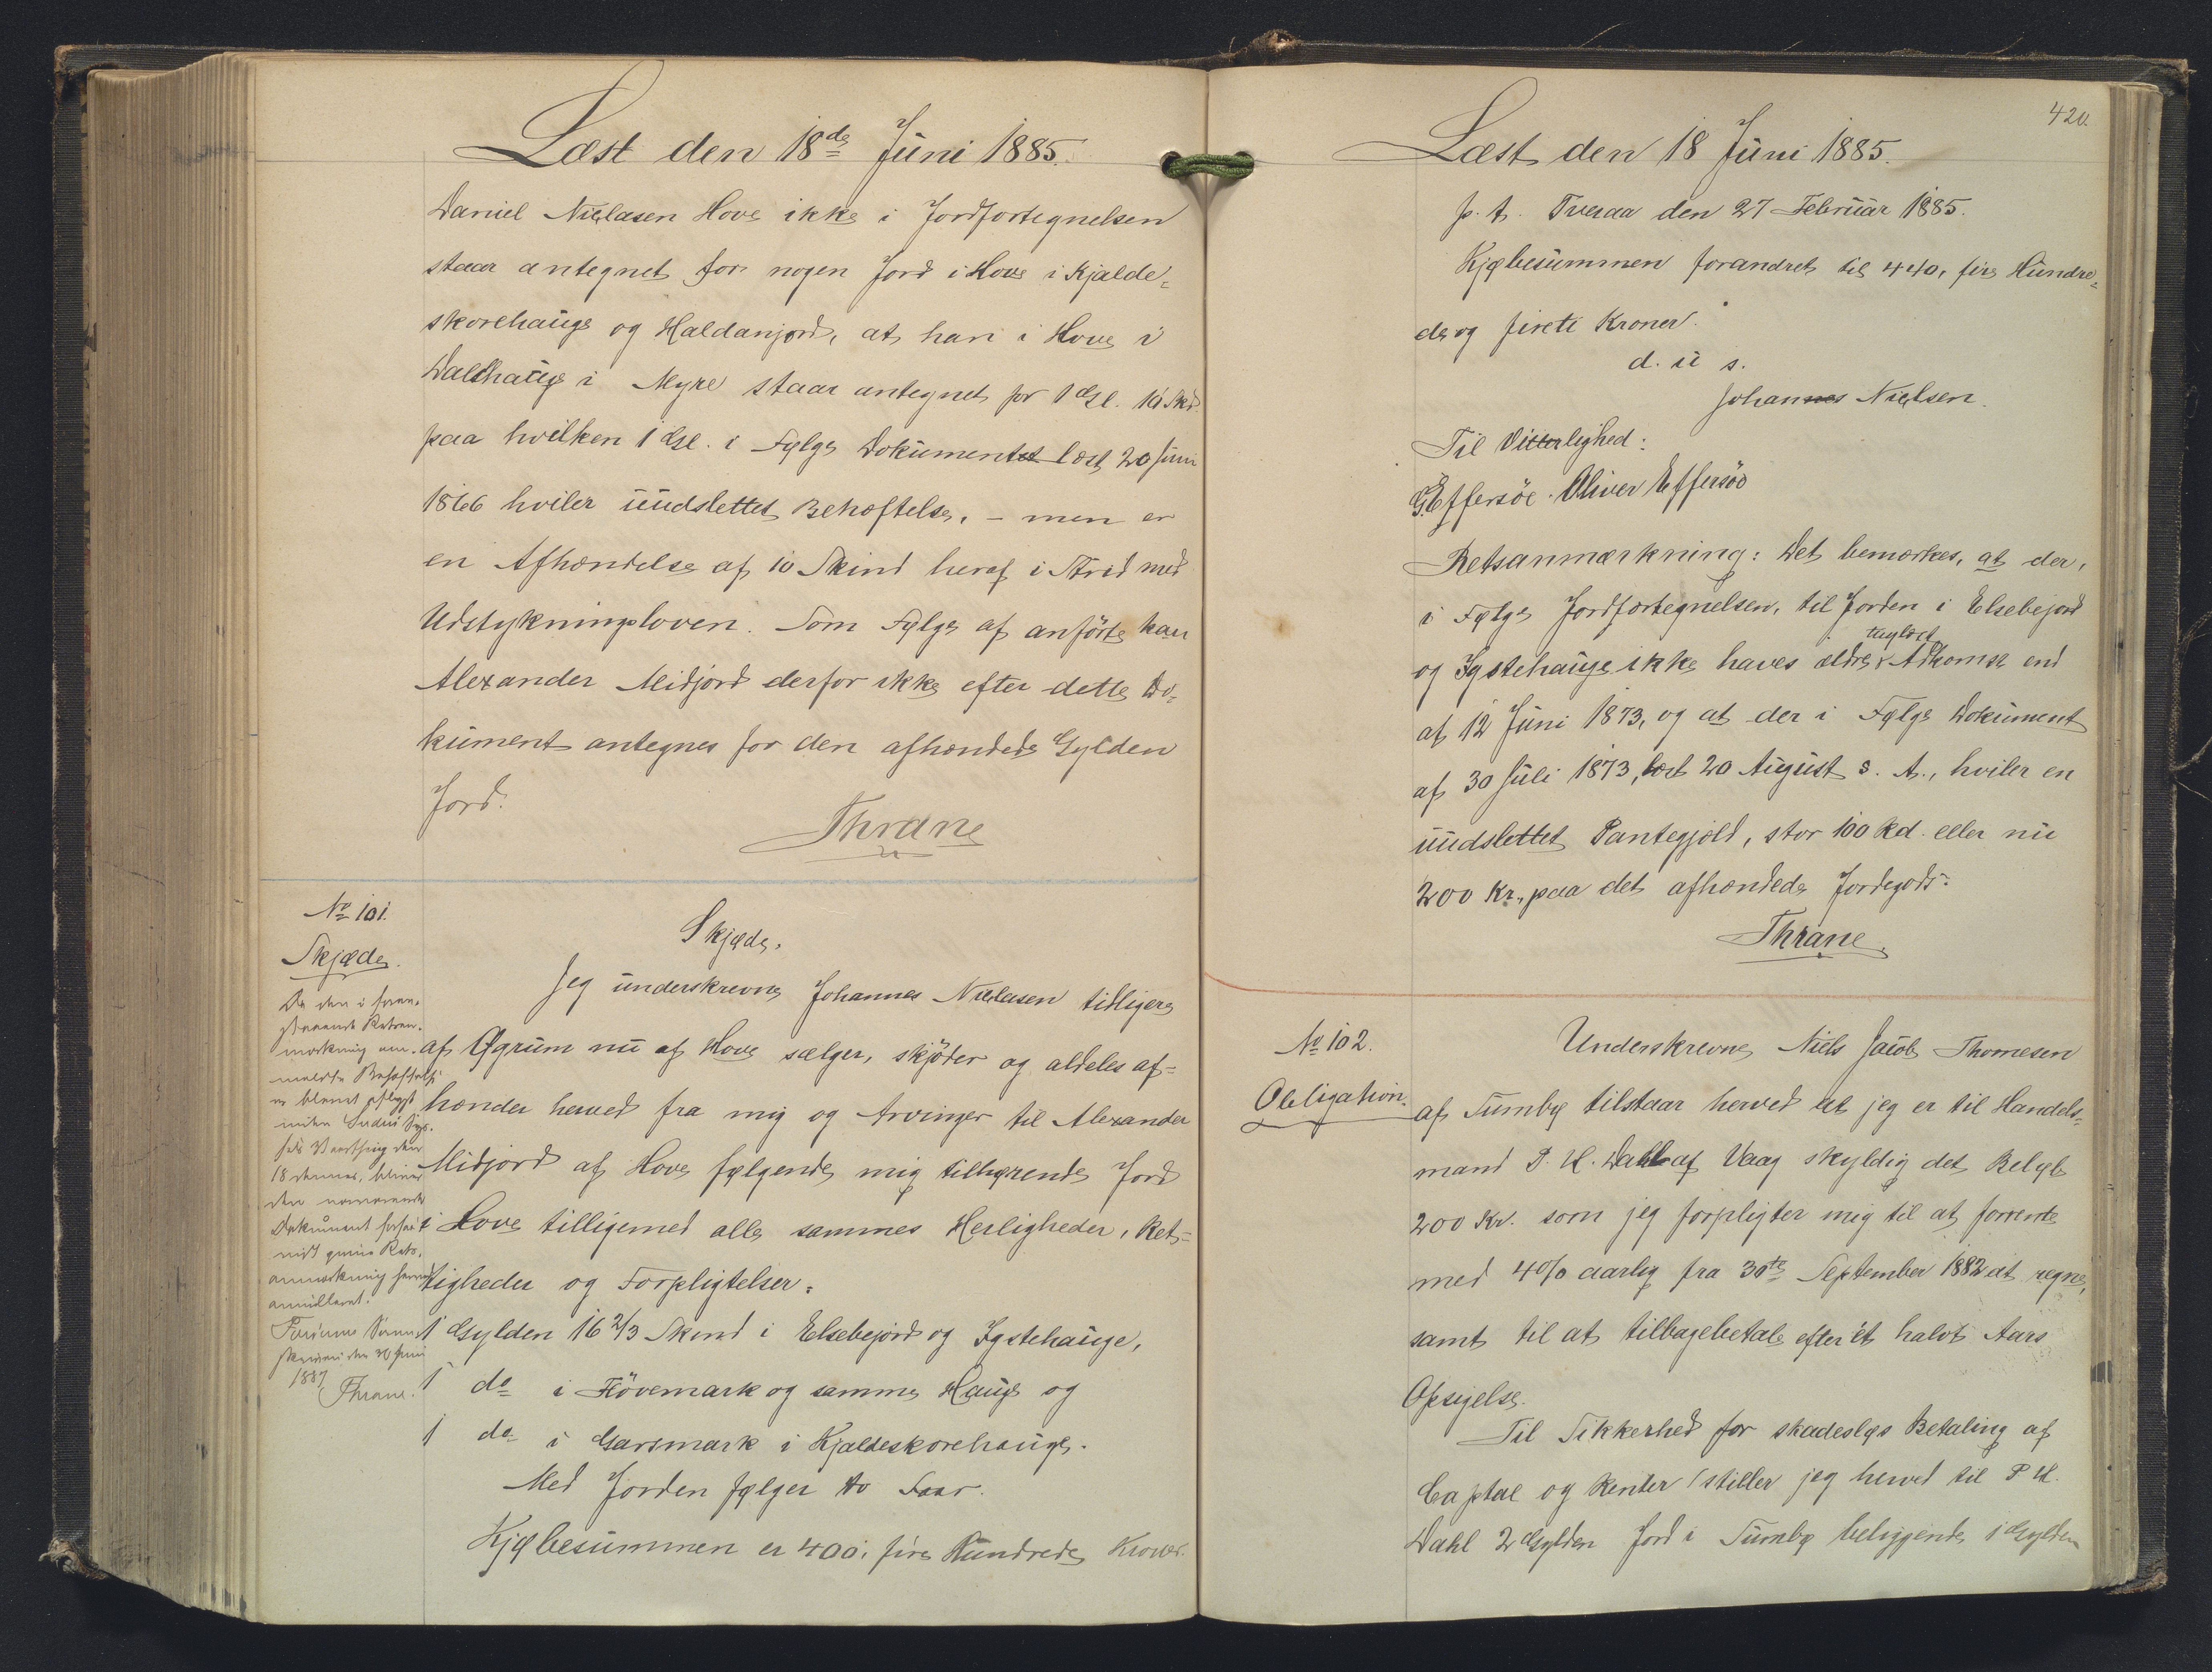 Læst den 18de Juni 1885.
Daniel Nielasen Hove ikke i Jordfortegnelsen
staar antegnet for nogen Jord i Hove i Kjalde-
skorehauge og Haldanjord, at han i Hove i
Dalshauge i Myre staar antegnet for 1 Gl. 10 Skd
paa hvilken 1 Gl. i Følge Dokumentet læst 20 Juni
1866 hviler uudslettet Behæftelse, - men er
en Afhændelse af 10 Skind heraf i Strid med
Udstykningsloven. Som Følge af anførte kan
Alexander Midjord derfor ikke efter dette Do-
kument antegnes for den afhændede Gylden
Jord.
Thrane
No 101.
Skjøde.
Da den i foran-
staaende Retsan-
mærkning om-
meldte Behæftelse
er blevet aflyst
inden Suderø Sys-
sels Vaarthing den
18 dennes, bliver
den nærværende
Dokument paaført
Rets-
anmærkning herved
annulleret.
Færøerne Soren-
skriveri den 20 Juni
1887
Thrane.
Skjøde.
Jeg underskrevne Johannes Nielasen tidligere
af Øgrum nu af Hove sælger, skjöder og aldeles af-
hænder herved fra mig og Arvinger til Alexander
Midjord af Hove følgende mig tilhørende Jord
i Hove tilligemed alle sammes Herligheder, Ret-
tigheder og Forpligtelser:
1 Gylden 16 2/3 Skind i Elsebejord og Igstehauge,
1 do i Hövemark og samme Hauge og
1 do i Garsmark i Kjaldeskorehauge.
Med Jorden følger to Faar.
Kjøbesummen er 400, fire Hundrede Kroner.
420.
Læst den 18 Juni 1885.
p. t. Tveraa den 27 Februar 1885.
Kjøbesummen forandret til 440, fire Hundre-
de og fireti Kroner.
d. u s.
Johannes Nielsen.
Til Vitterlighed:
G. Effersöe. Oliver Effersöe
Retsanmærkning: Det bemærkes, at der,
i Følge Jordfortegnelsen, til Jorden i Elsebejord
tinglæst
og Igstehauge ikke haves ældre Adkomst end
af 12 Juni 1873, og at der i Følge Dokument
af 30 Juli 1873, læst 20 August s. A., hviler en
uudslettet Pantegjæld, stor 100 Rd. eller nu
200 Kr., paa det afhændede Jordegods.
Thrane.
No 102.
Obligation.
Underskrevne Niels Jacob Thomesen
af Sumbø tilstaar herved at jeg er til Handels-
mand P. H. Dahl af Vaag skyldig det Beløb
200 Kr. som jeg forpligter mig til at forrente
med 4% aarlig fra 30te September 1882 at regne,
samt til at tilbagebetale efter et halvt Aars
Opsigelse.
Til Sikkerhed for skadesløs Betaling af
Captal og Renter stiller jeg herved til P H.
Dahl 2 Gylden Jord i Sumbø beliggende 1 Gylden